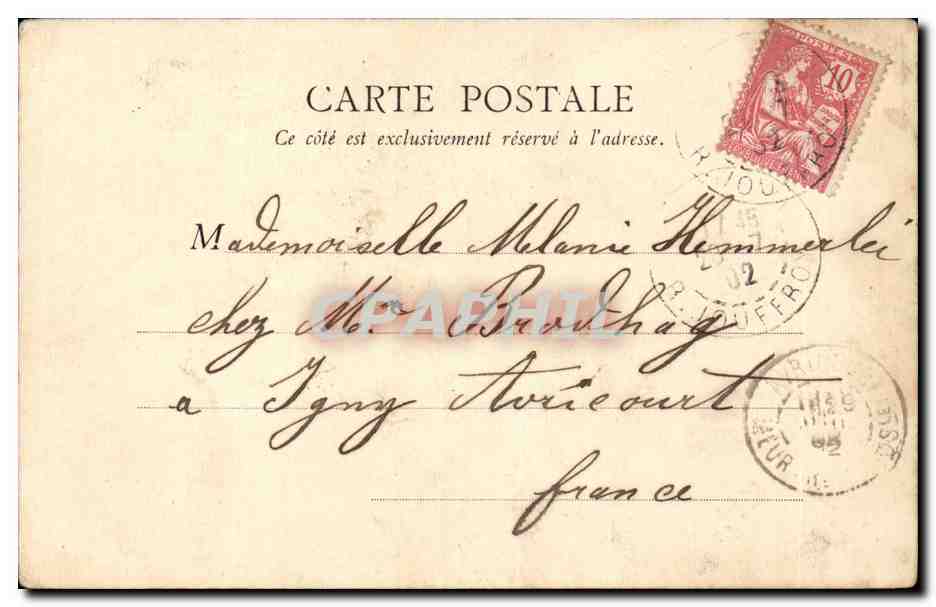 CARTE POSTALE
Ce côté est exclusivement réservé à l'adresse.
10
Mademoiselle Melanie Hemmerlei
chez Mr Brodhag
a Igny Avricourt
france
CPAPHIL
02
R. JOUFFROY